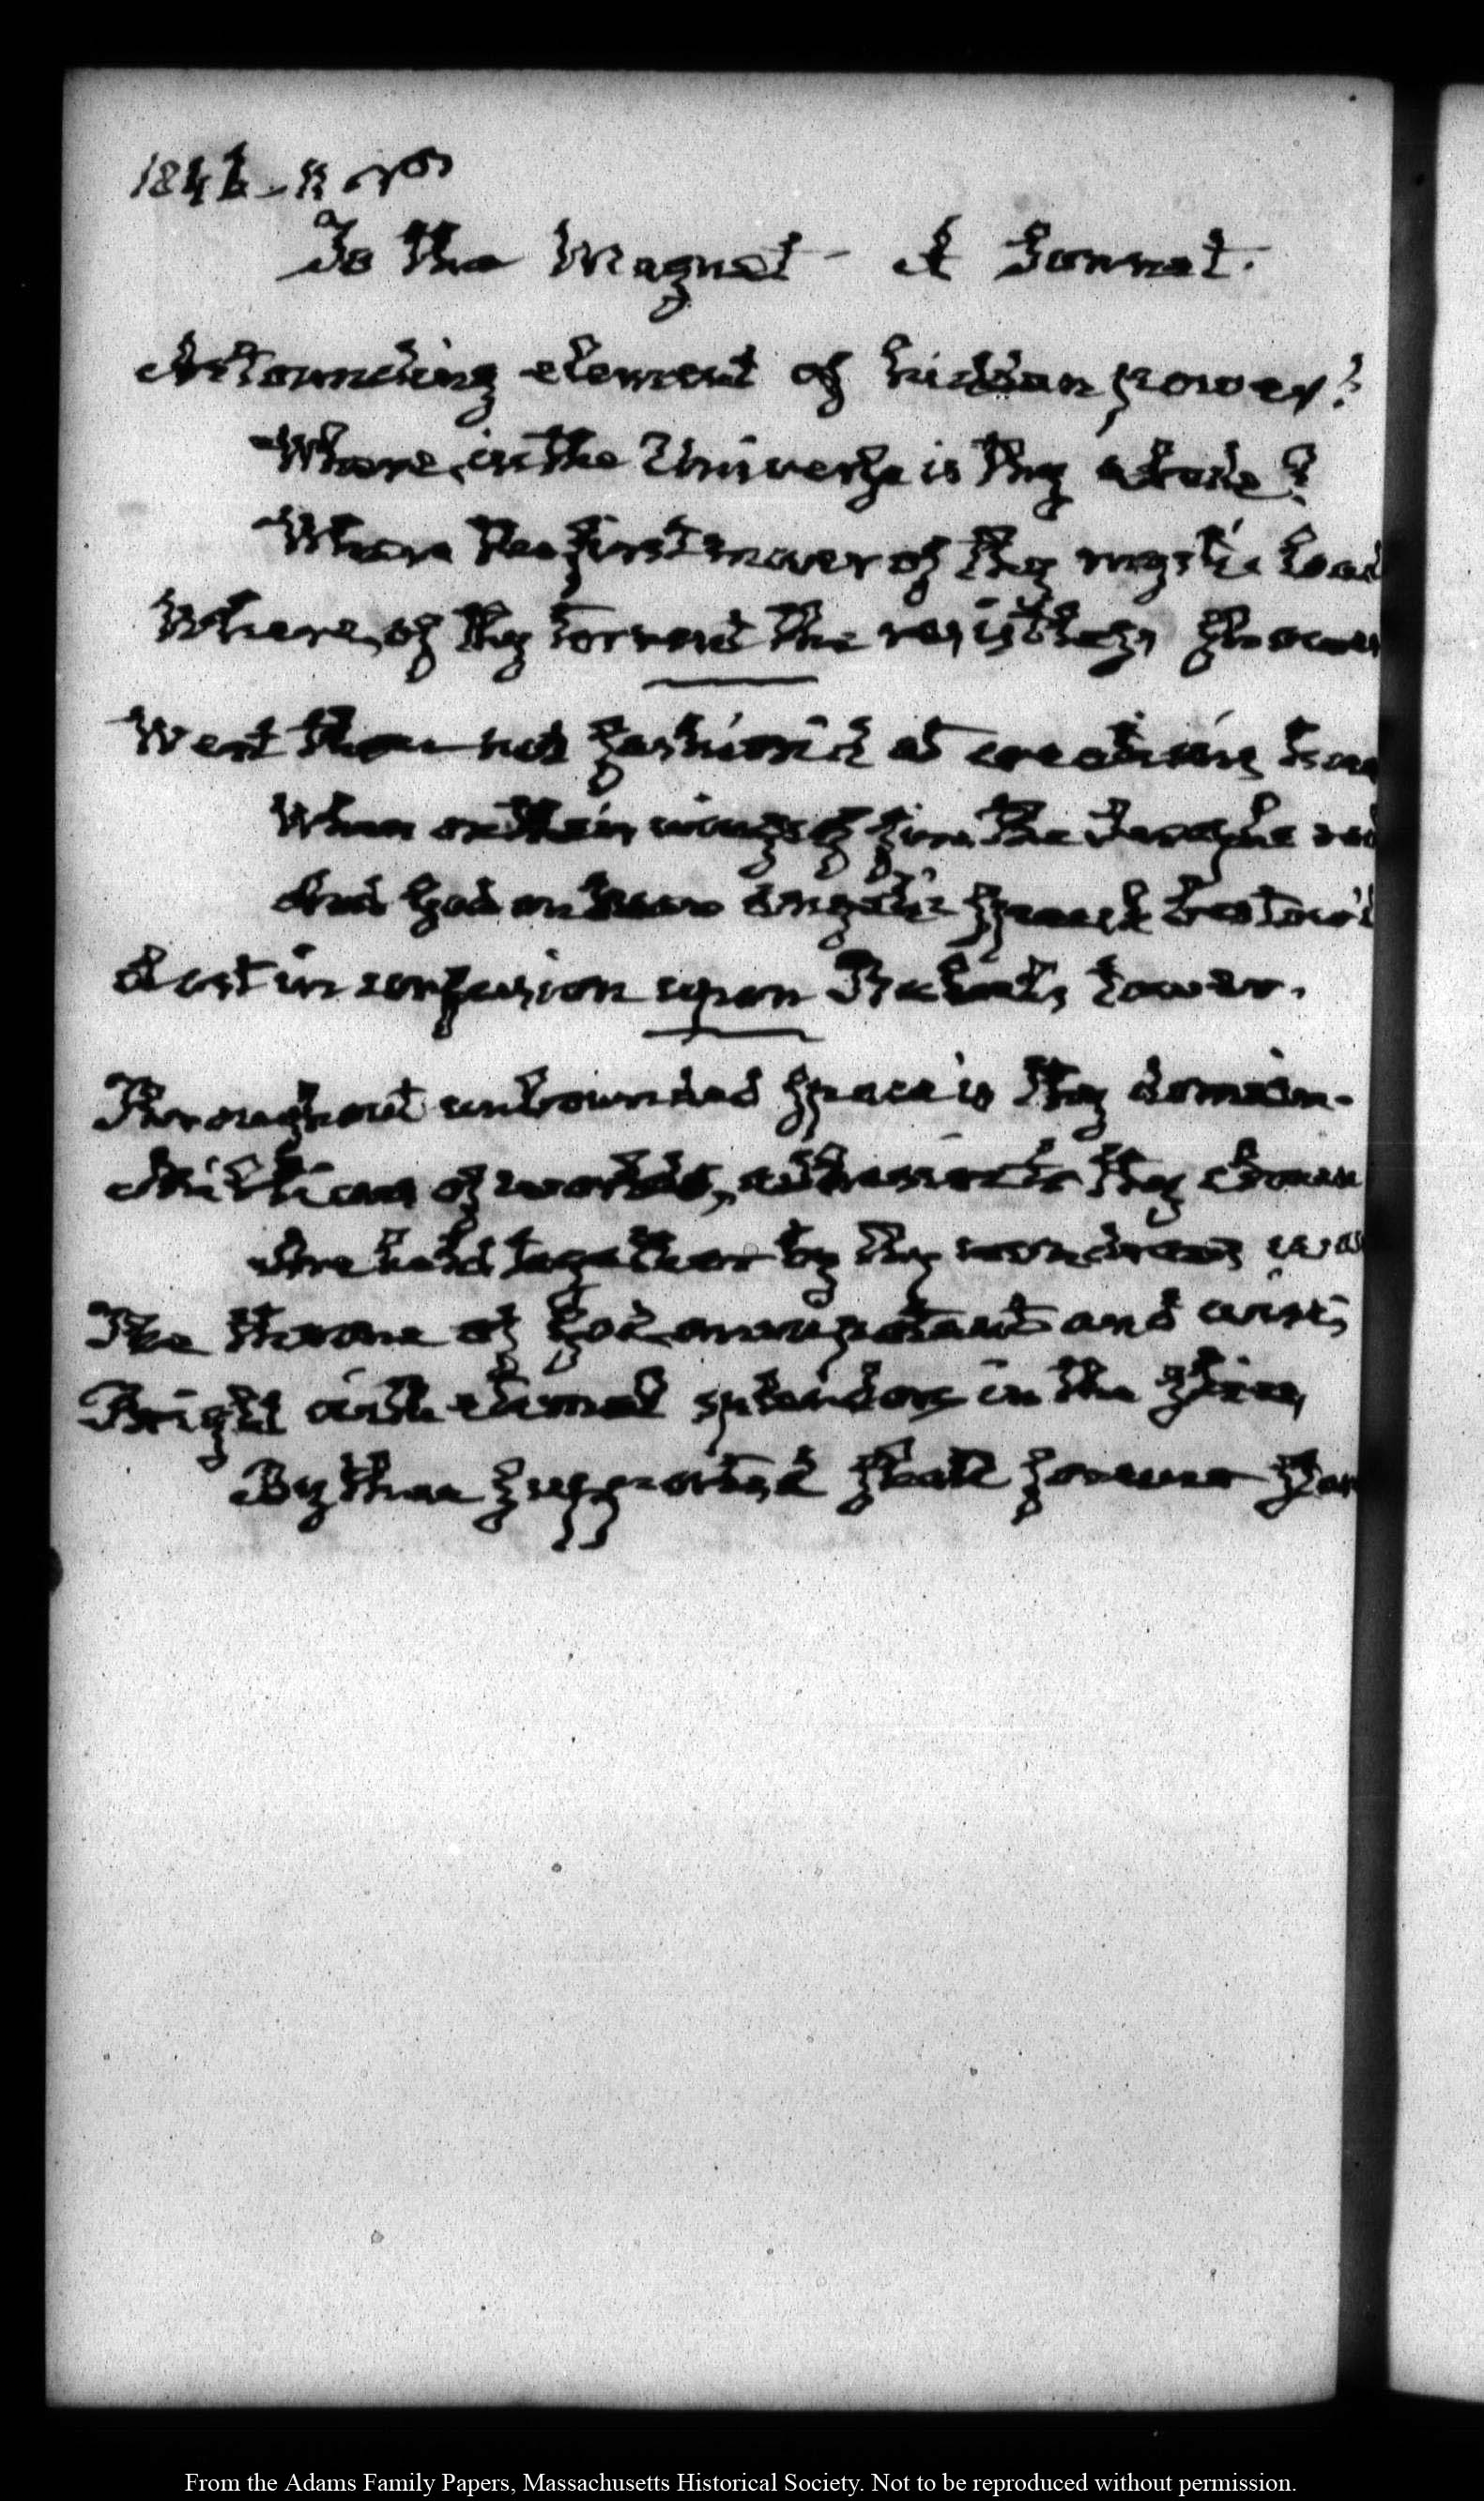 To the Magnet - A Sonnet.
Astounding element of hidden power!
Where, in the Universe is thy abode?
Where the first mover of thy mystic load
Where, of thy torrent the resistless
Wert thou not fashion'd at creation's
When on their wings of fire the Seraphs
And God on angelic speech bestow'd
Lost in confusion upon Babel's tower.
Throughout unbounded space is thy domain.
Millions of worlds, thy
Are held together by thy wondrous
The throne of God omnipotent and wise,
Bright with eternal splendors in the
By thee supported shall forever
From the Adams Family Papers, Massachusetts Historical Society. Not to be reproduced without permission.